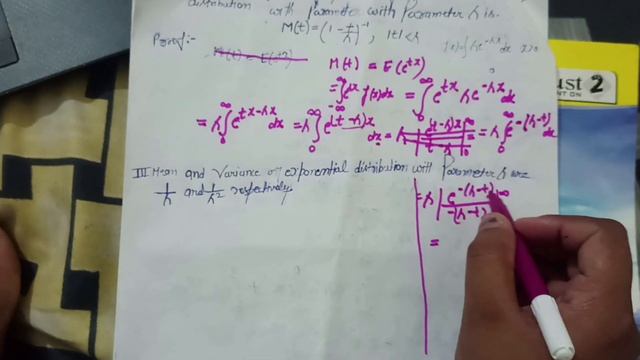 distribution with parameter with Parameter λ is.
M(t) = (1 - t/λ)^-1, |t| < λ
Proof:-
M(t) = E(e^tx)
M(t) = E(e^tx)
= ∫_-∞^∞ e^tx f(x)dx = ∫_0^∞ e^tx λe^-λx dx
= λ∫_0^∞ e^tx-λx dx = λ∫_0^∞ e^(t-λ)x dx = λ
III Mean and Variance of exponential distribution with Parameter λ are
1/λ and 1/λ² respectively
= λ | e^-(λ-t) / -(λ-t)
=
ust 2